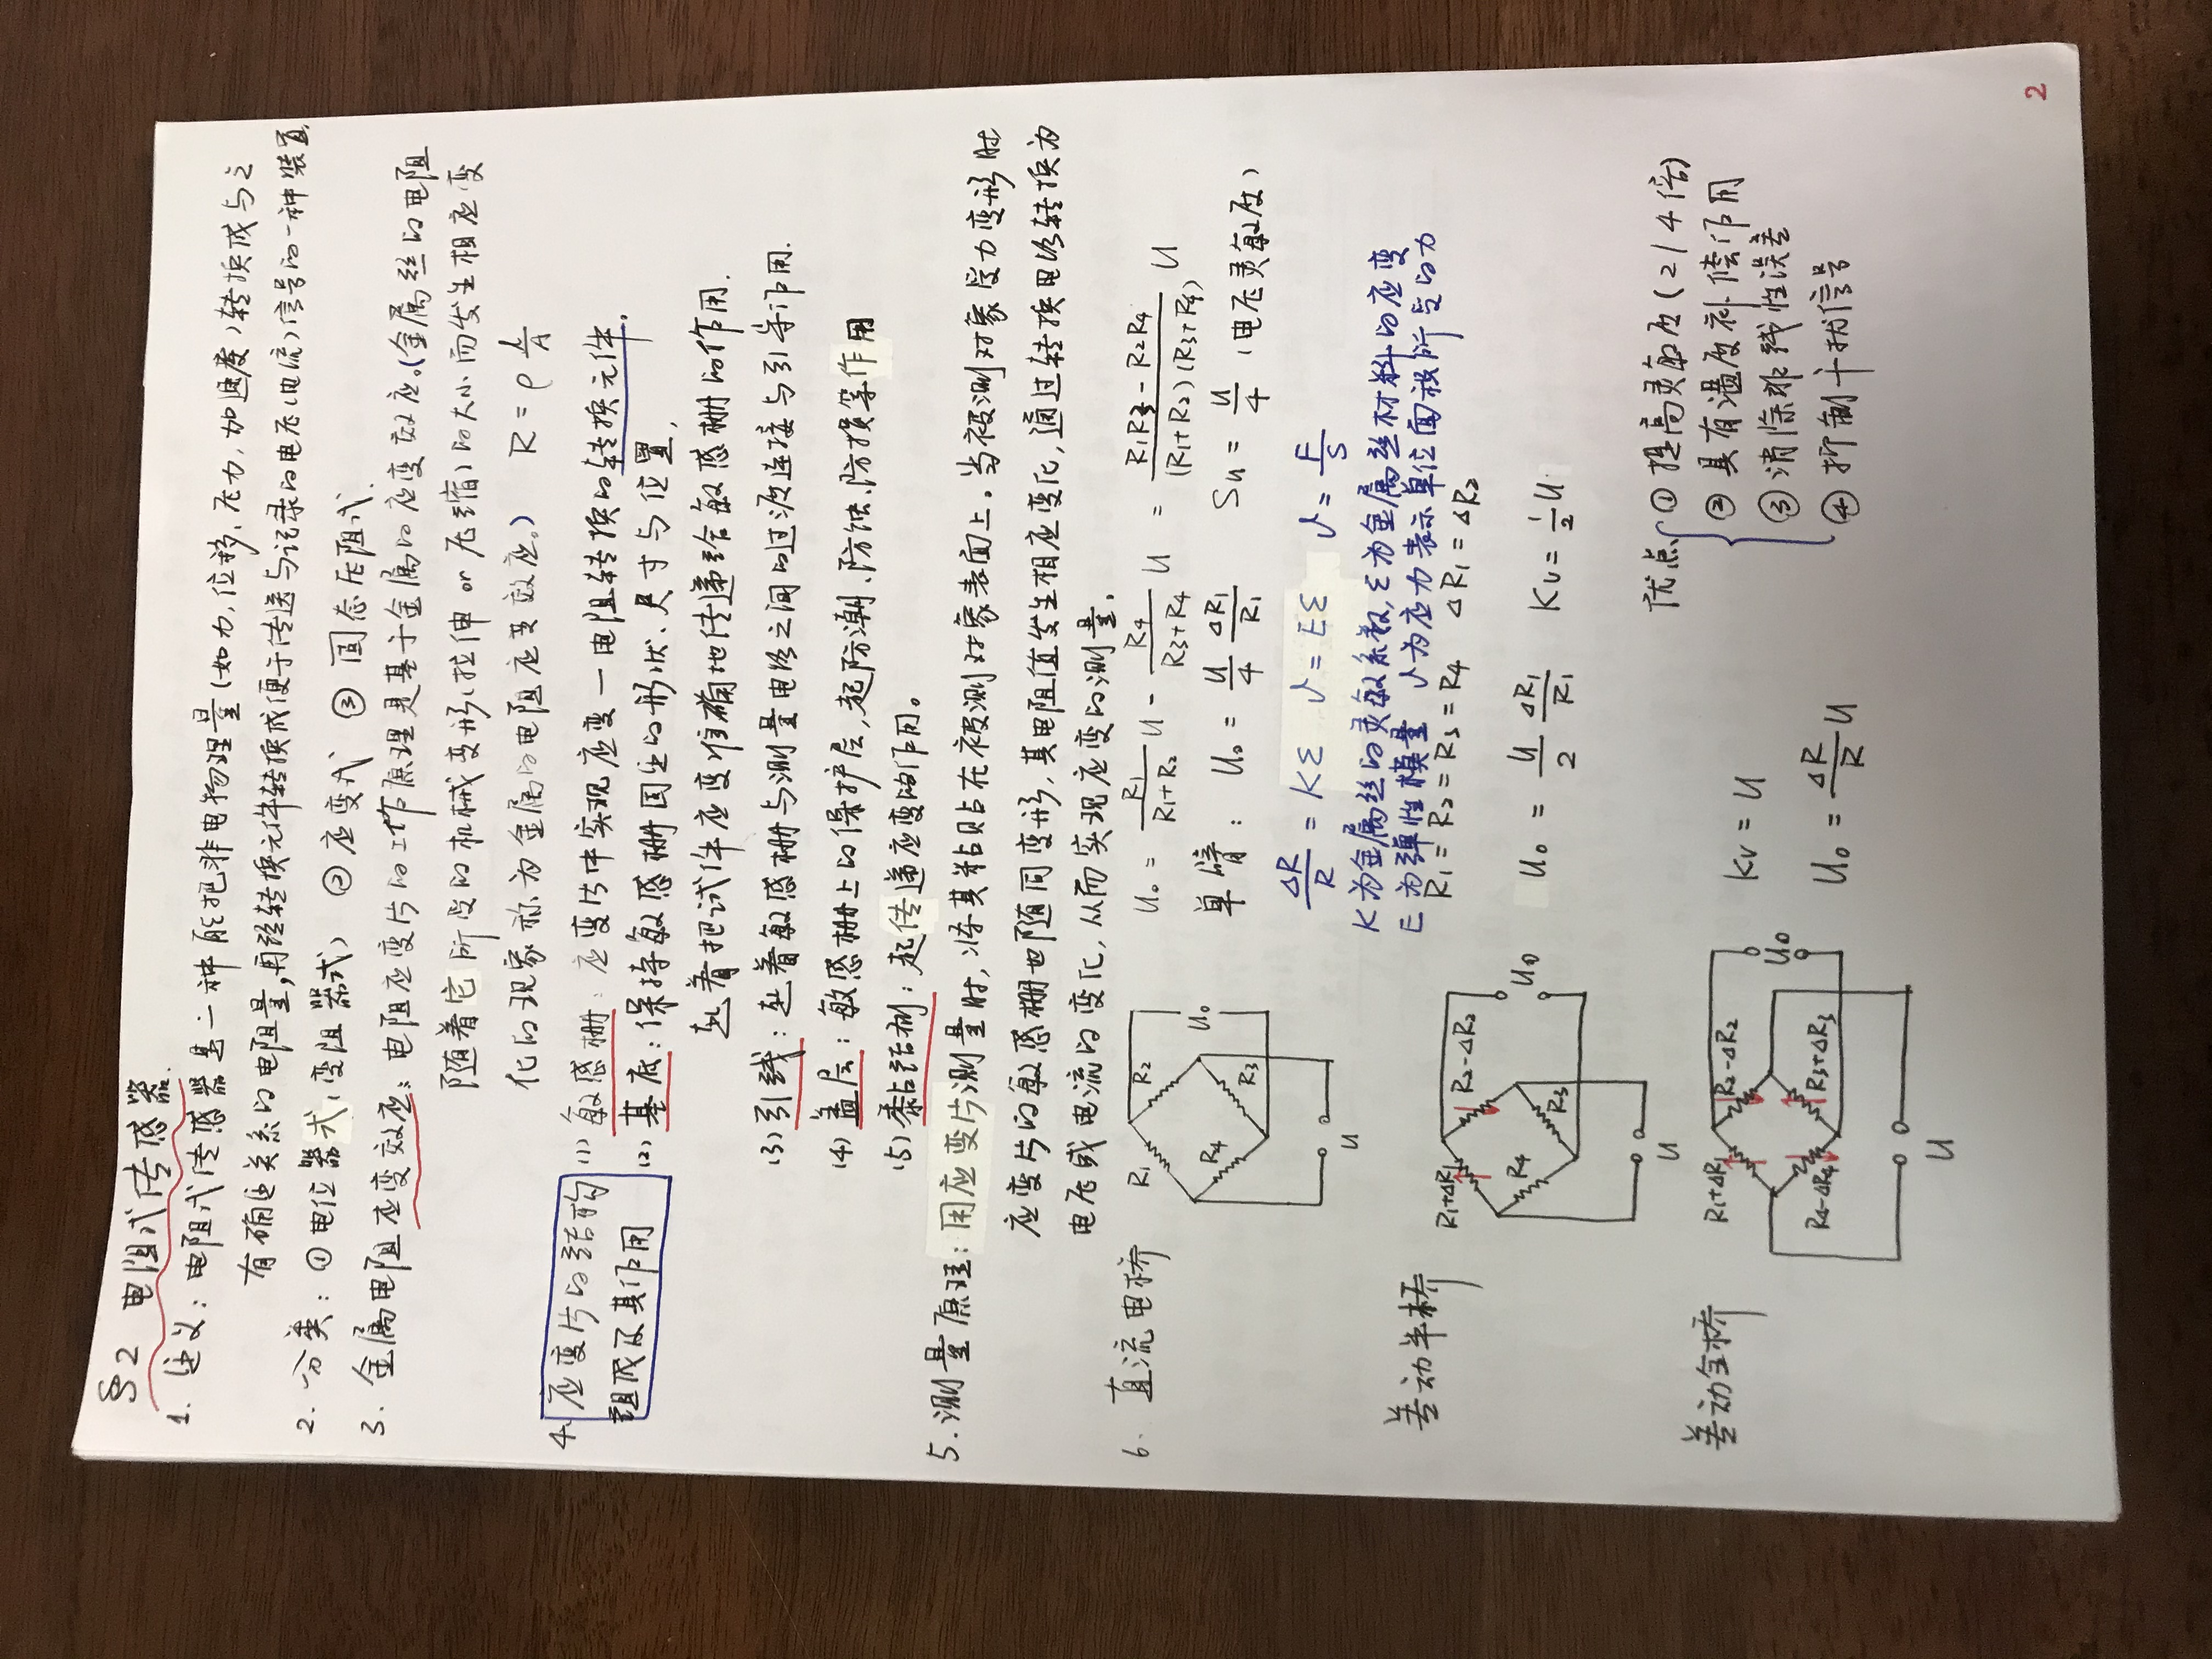 §2 电阻式传感器.
1. 定义：电阻式传感器是一种能把非电物理量(如力,位移、压力,加速度)转换成与之
有确定关系的电阻量,再经转换元件转换成便于传送与记录的电压(电流)信号的一种装置.
2. 分类：① 电位器式(变阻器式) ② 应变式 ③ 固态压阻式.
3. 金属电阻应变效应：电阻应变片的工作原理是基于金属的应变效应。(金属丝的电阻
随着它所受的机械变形(拉伸 or 压缩)的大小而发生相应变
化的现象称为金属的电阻应变效应。) R = ρ l/A
4. 应变片的结构
组成及其作用
(1) 敏感栅：应变片中实现应变一电阻转换的转换元件.
(2) 基底：保持敏感栅固定的形状、尺寸与位置,
起着把试件应变准确地传递给敏感栅的作用.
(3) 引线：起着敏感栅与测量电路之间的过渡连接与引导作用.
(4) 盖层：敏感栅上的保护层,起防潮、防蚀、防损等作用
(5) 黏结剂：起传递应变的作用。
5. 测量原理：用应变片测量时,将其粘贴在被测对象表面上。当被测对象受力变形时
应变片的敏感栅也随同变形,其电阻值发生相应变化,通过转换电路转换为
电压或电流的变化,从而实现应变的测量.
6. 直流电桥
R1 R2 R4 R3 U0 U
U0 = R1/(R1+R2) U - R4/(R3+R4) U = (R1R3 - R2R4)/((R1+R2)(R3+R4)) U
单臂：U0 = U/4 ΔR1/R1 Su = U/4 (电压灵敏度)
ΔR/R = Kε σ = Eε σ = F/S
K为金属丝的灵敏系数,ε为金属丝材料的应变
E为弹性模量 σ为应力表示单位面积所受的力
差动半桥
R1+ΔR1 R2-ΔR2 R4 R3 U0 U
R1 = R2 = R3 = R4 ΔR1 = ΔR2
U0 = U/2 ΔR1/R1 Kv = 1/2 U
差动全桥
R1+ΔR1 R2-ΔR2 R4-ΔR4 R3+ΔR3 U0 U
Kv = U
U0 = ΔR/R U
优点 ① 提高灵敏度(2/4倍)
② 具有温度补偿作用
③ 消除非线性误差
④ 抑制干扰信号
2